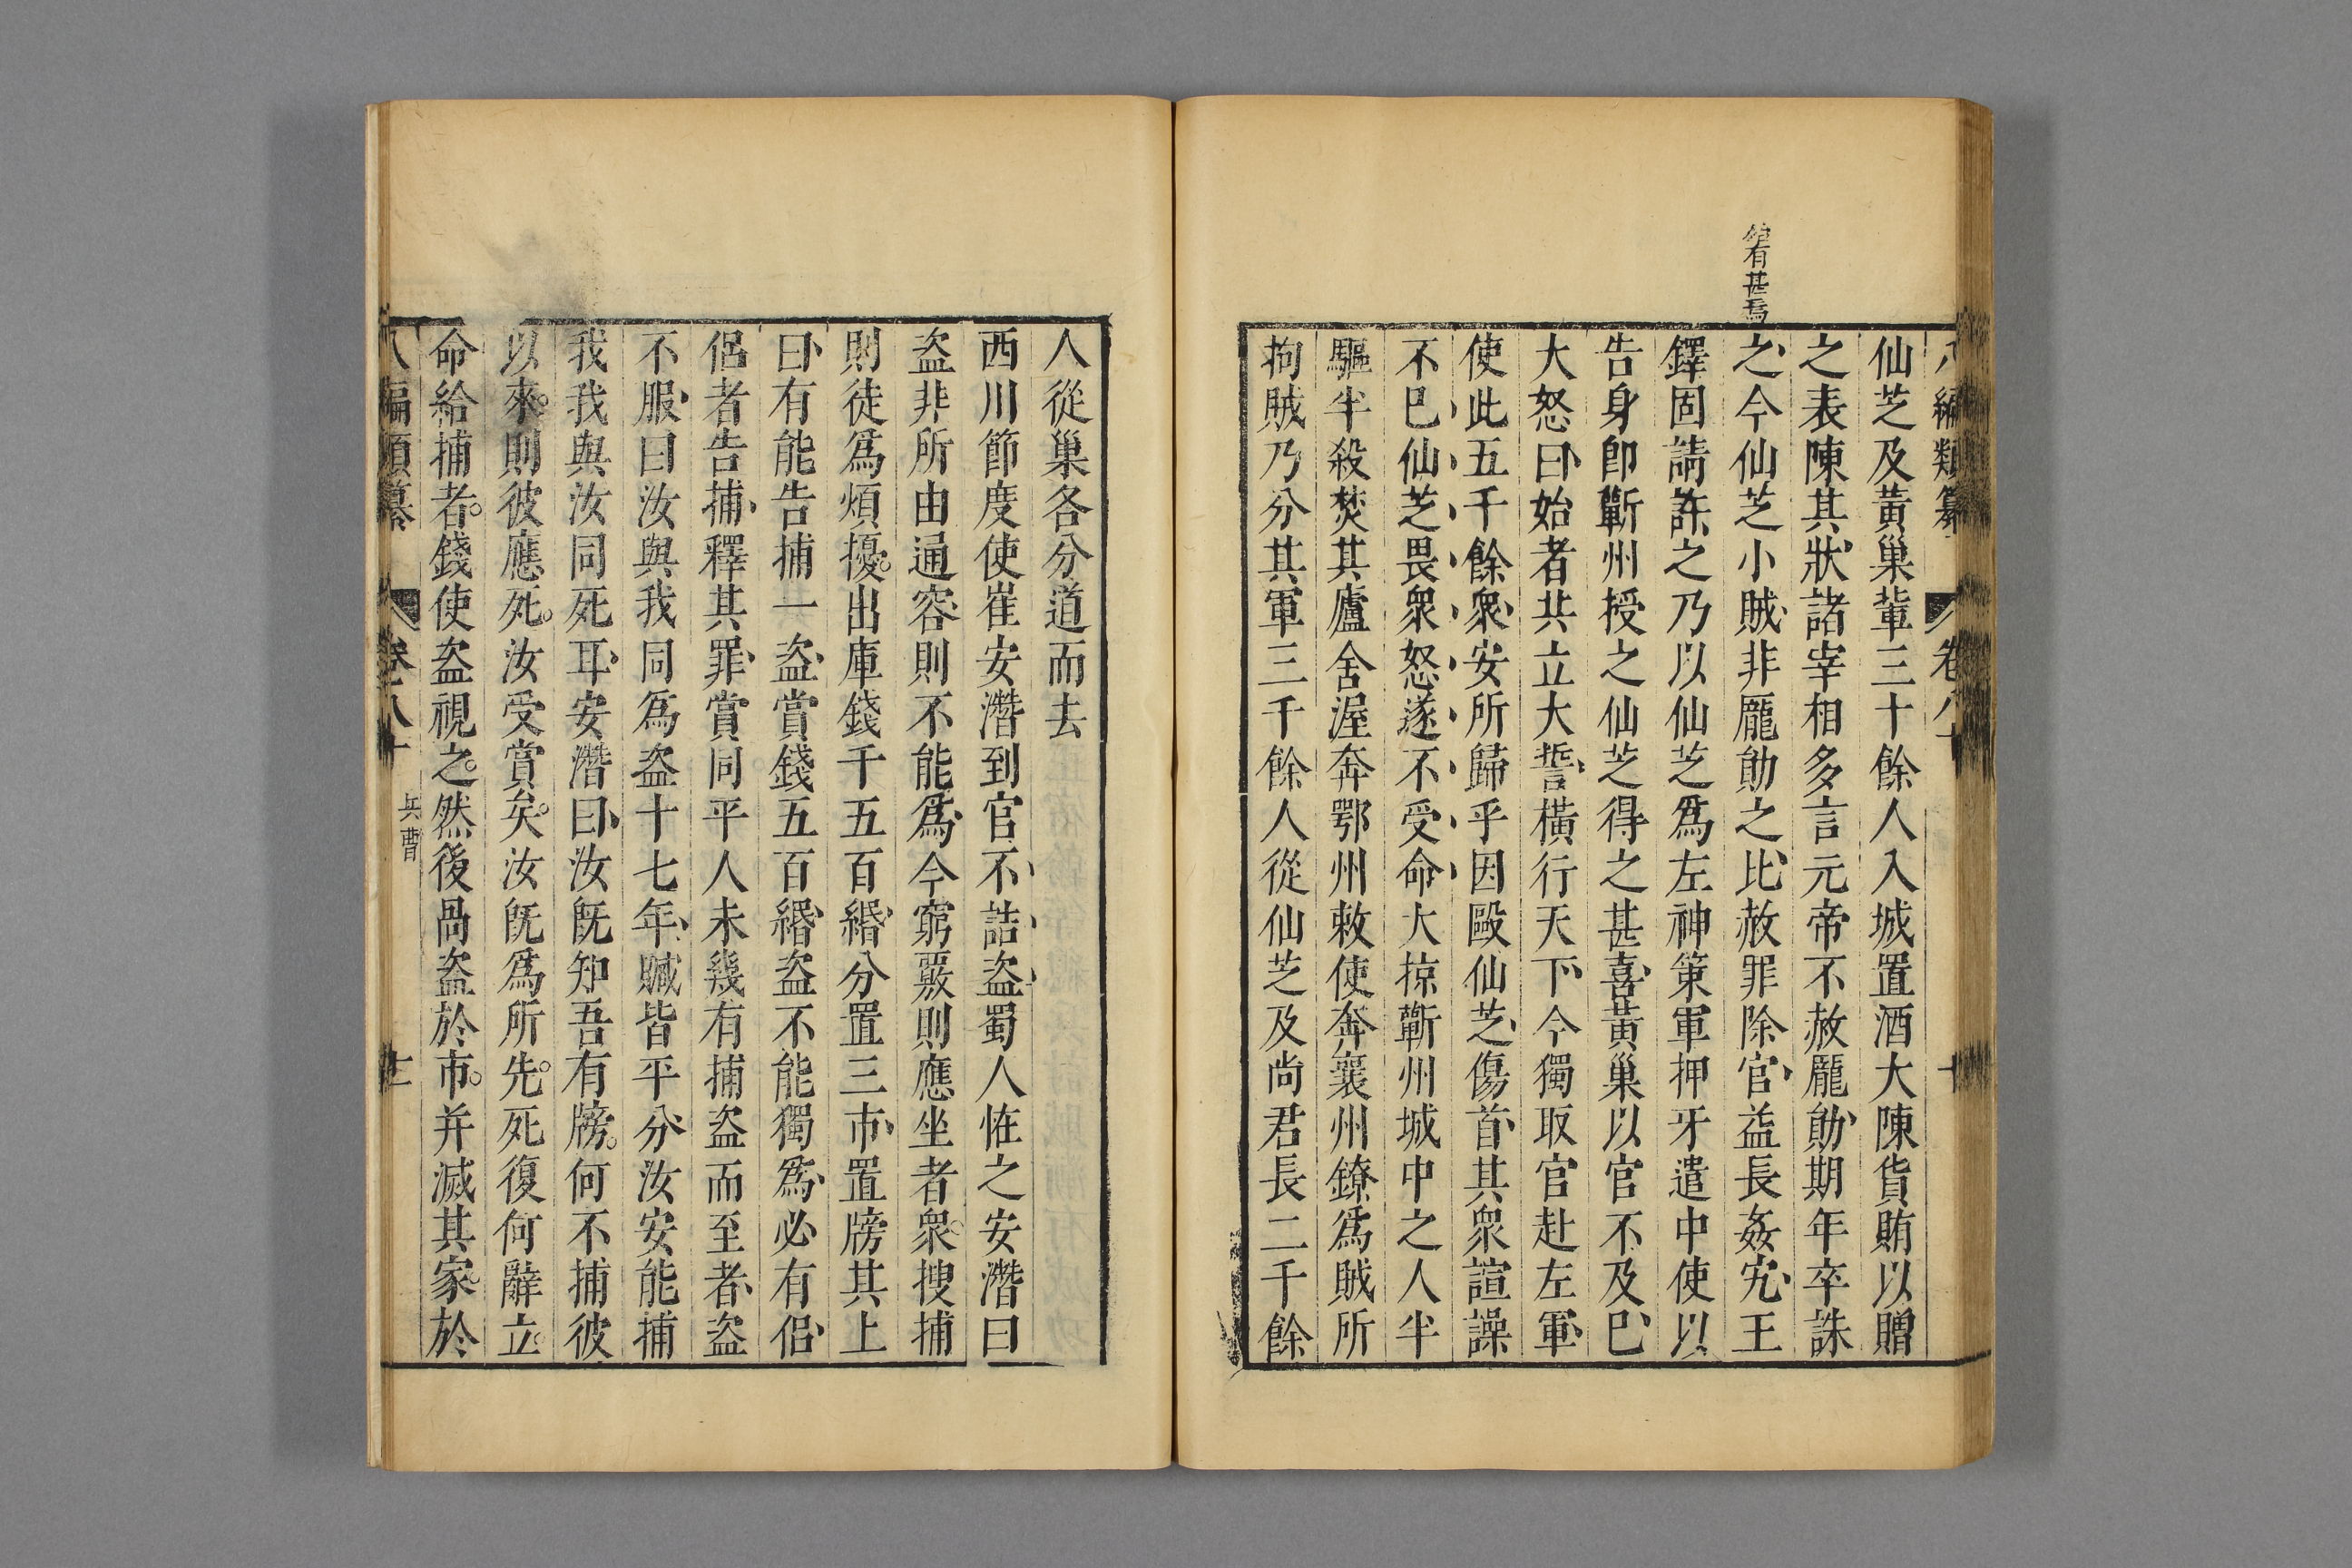 八編類纂 卷八十 十
仙芝及黃巢輩三十餘人入城置酒大陳貨賄以贈
之表陳其狀諸宰相多言元帝不赦龎勛期年卒誅
有甚焉
之今仙芝小賊非龎勛之比赦罪除官益長姦宄王
鐸固請許之乃以仙芝爲左神策軍押牙遣中使以
告身卽蘄州授之仙芝得之甚喜黃巢以官不及巳
大怒曰始者共立大誓橫行天下今獨取官赴左軍
使此五千餘衆安所歸乎因毆仙芝傷首其衆諠譟
不巳仙芝畏衆怒遂不受命大掠蘄州城中之人半
驅半殺焚其廬舍渥奔鄂州敕使奔襄州鐐爲賊所
拘賊乃分其軍三千餘人從仙芝及尚君長二千餘
人從巢各分道而去
西川節度使崔安潛到官不詰盗蜀人恠之安潛曰
盗非所由通容則不能爲今窮覈則應坐者衆搜捕
則徒爲煩擾出庫錢千五百緡分置三市置牓其上
曰有能告捕一盗賞錢五百緡盗不能獨爲必有侣
侶者告捕釋其罪賞同平人未幾有捕盗而至者盗
不服曰汝與我同爲盗十七年贓皆平分汝安能捕
我我與汝同死耳安潛曰汝旣知吾有牓何不捕彼
以來則彼應死汝受賞矣汝旣爲所先死復何辭立
命給捕者錢使盗視之然後咼盗於市并滅其家於
八編類纂 卷八十 兵曹 十一